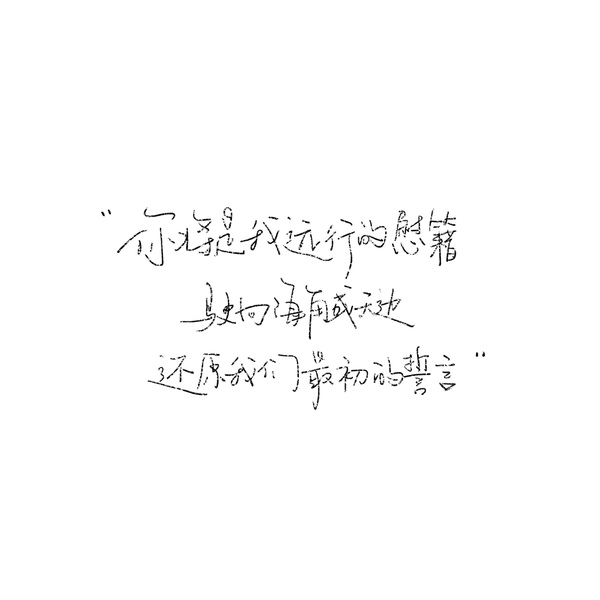 "你将是我远行的慰籍
驶向海角或天边
还原我们最初的誓言"